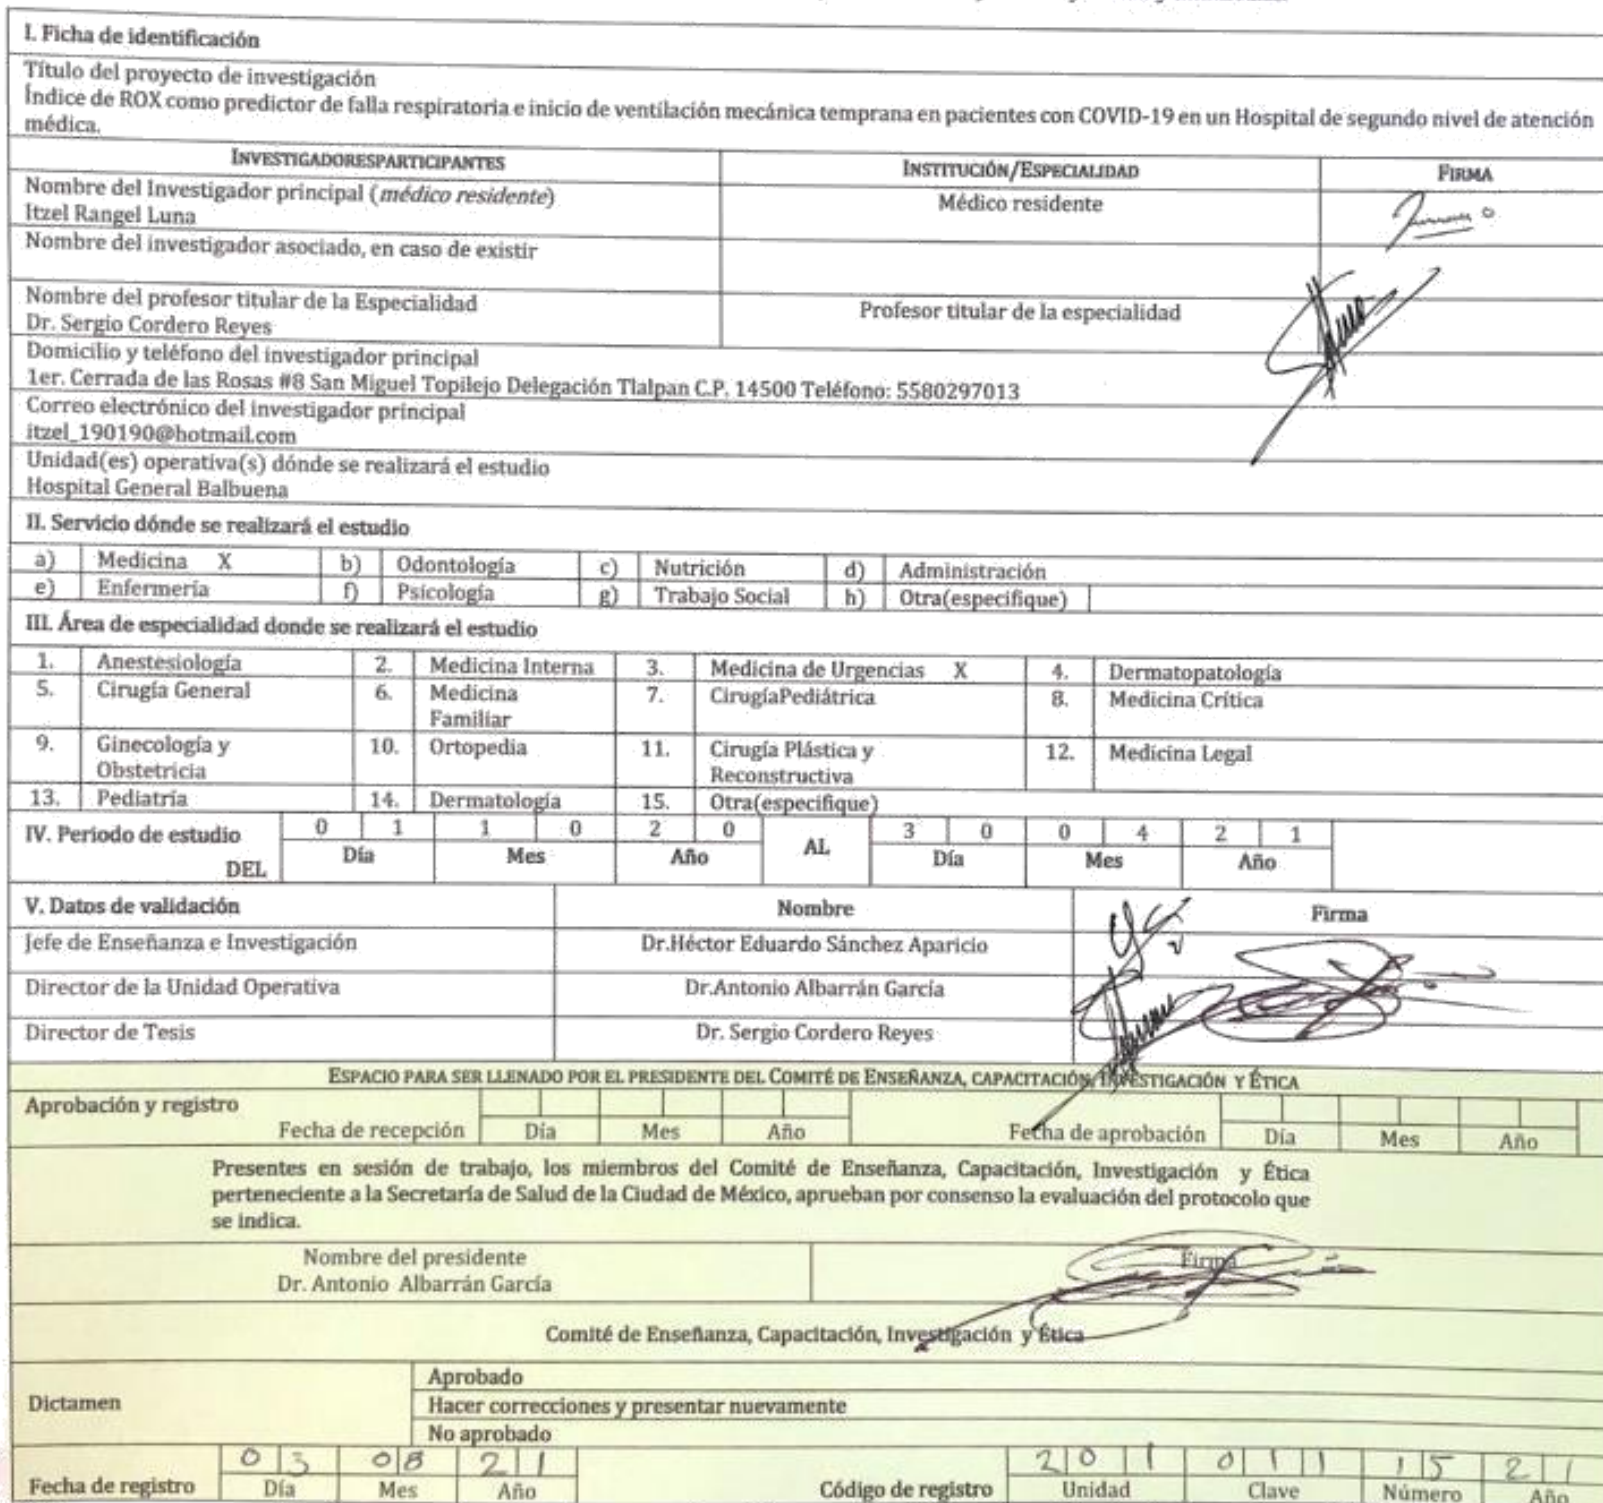 I. Ficha de identificación
Título del proyecto de investigación
Índice de ROX como predictor de falla respiratoria e inicio de ventilación mecánica temprana en pacientes con COVID-19 en un Hospital de segundo nivel de atención
médica.
INVESTIGADORESPARTICIPANTES INSTITUCIÓN/ESPECIALIDAD FIRMA
Nombre del Investigador principal (médico residente) Médico residente
Itzel Rangel Luna
Nombre del investigador asociado, en caso de existir
Nombre del profesor titular de la Especialidad Profesor titular de la especialidad
Dr. Sergio Cordero Reyes
Domicilio y teléfono del investigador principal
1er. Cerrada de las Rosas #8 San Miguel Topilejo Delegación Tlalpan C.P. 14500 Teléfono: 5580297013
Correo electrónico del investigador principal
itzel_190190@hotmail.com
Unidad(es) operativa(s) dónde se realizará el estudio
Hospital General Balbuena
II. Servicio dónde se realizará el estudio
a) Medicina X b) Odontología c) Nutrición d) Administración
e) Enfermería f) Psicología g) Trabajo Social h) Otra(especifique)
III. Área de especialidad donde se realizará el estudio
1. Anestesiología 2. Medicina Interna 3. Medicina de Urgencias X 4. Dermatopatología
5. Cirugía General 6. Medicina Familiar 7. CirugíaPediátrica 8. Medicina Crítica
9. Ginecología y Obstetricia 10. Ortopedia 11. Cirugía Plástica y Reconstructiva 12. Medicina Legal
13. Pediatría 14. Dermatología 15. Otra(especifique)
IV. Periodo de estudio 0 1 1 0 2 0 AL 3 0 0 4 2 1
DEL Día Mes Año Día Mes Año
V. Datos de validación Nombre Firma
Jefe de Enseñanza e Investigación Dr.Héctor Eduardo Sánchez Aparicio
Director de la Unidad Operativa Dr.Antonio Albarrán García
Director de Tesis Dr. Sergio Cordero Reyes
ESPACIO PARA SER LLENADO POR EL PRESIDENTE DEL COMITÉ DE ENSEÑANZA, CAPACITACIÓN, INVESTIGACIÓN Y ÉTICA
Aprobación y registro
Fecha de recepción Día Mes Año Fecha de aprobación Día Mes Año
Presentes en sesión de trabajo, los miembros del Comité de Enseñanza, Capacitación, Investigación y Ética
perteneciente a la Secretaría de Salud de la Ciudad de México, aprueban por consenso la evaluación del protocolo que
se indica.
Nombre del presidente Firma
Dr. Antonio Albarrán García
Comité de Enseñanza, Capacitación, Investigación y Ética
Aprobado
Dictamen Hacer correcciones y presentar nuevamente
No aprobado
0 3 0 8 2 1 2 0 1 1 0 1 1 1 5 2 1
Fecha de registro Día Mes Año Código de registro Unidad Clave Número Año